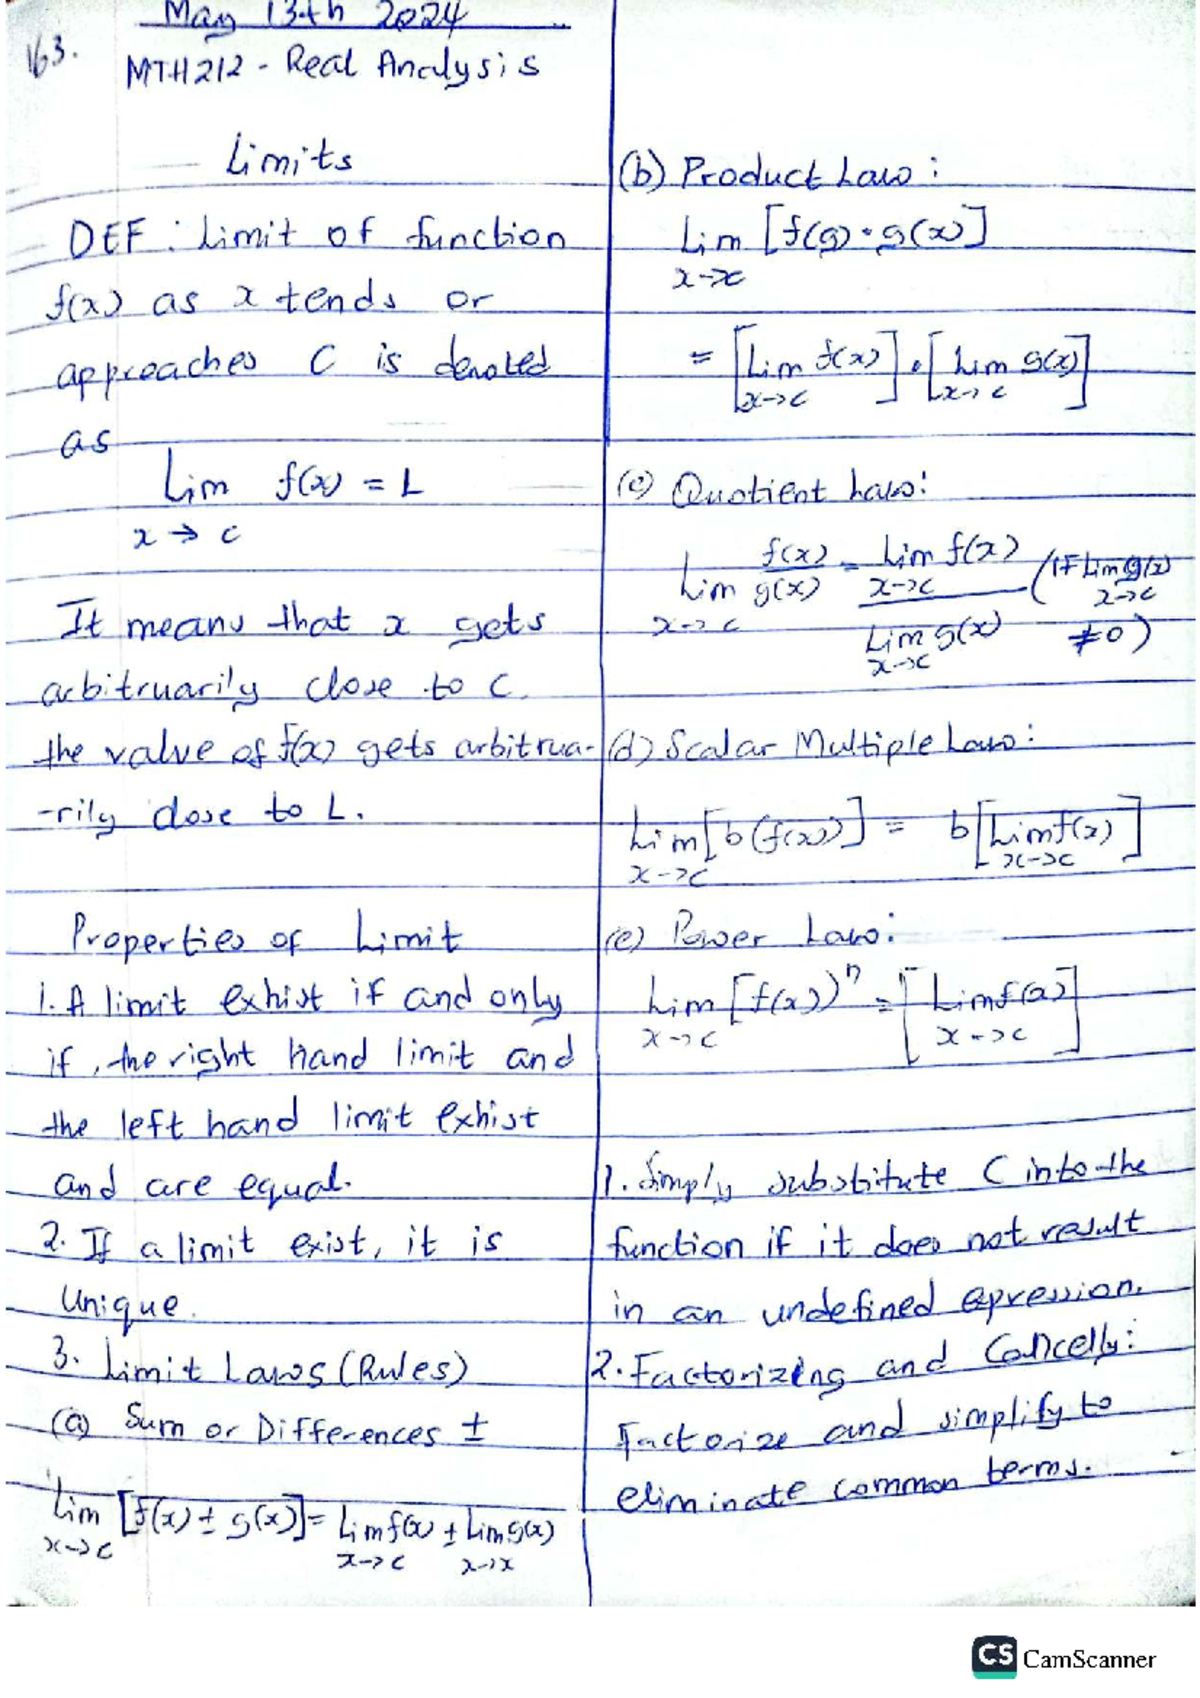 May 13th 2024
163.
MTH212 - Real Analysis
Limits
DEF : Limit of function
f(x) as x tends or
approaches C is denoted
as
Lim f(x) = L
x → c
It means that x gets
arbitruarily close to c.
the value of f(x) gets arbitrua-
-rily close to L.
Properties of Limit
1. A limit exhist if and only
if, the right hand limit and
the left hand limit exhist
and are equal.
2. If a limit exist, it is
Unique.
3. Limit Laws (Rules)
(a) Sum or Differences ±
Lim [f(x) ± g(x)] = Lim f(x) ± Lim g(x)
x→c x→c x→x
(b) Product Law :
Lim [f(g) · g(x)]
x→c
= [Lim f(x)] · [Lim g(x)]
x→c x→c
(c) Quotient Law:
Lim f(x)/g(x) = Lim f(x) / Lim g(x) (If Lim g(x) ≠ 0)
x→c x→c x→c x→c
(d) Scalar Multiple Law:
Lim [b(f(x))] = b[Lim f(x)]
x→c x→c
(e) Power Law:
Lim [f(x))ⁿ = [Lim f(x)]
x→c x→c
1. Simply substitute C into the
function if it does not result
in an undefined epression.
2. Factorizing and Cancelly:
Factorize and simplify to
eliminate common terms.
CS CamScanner